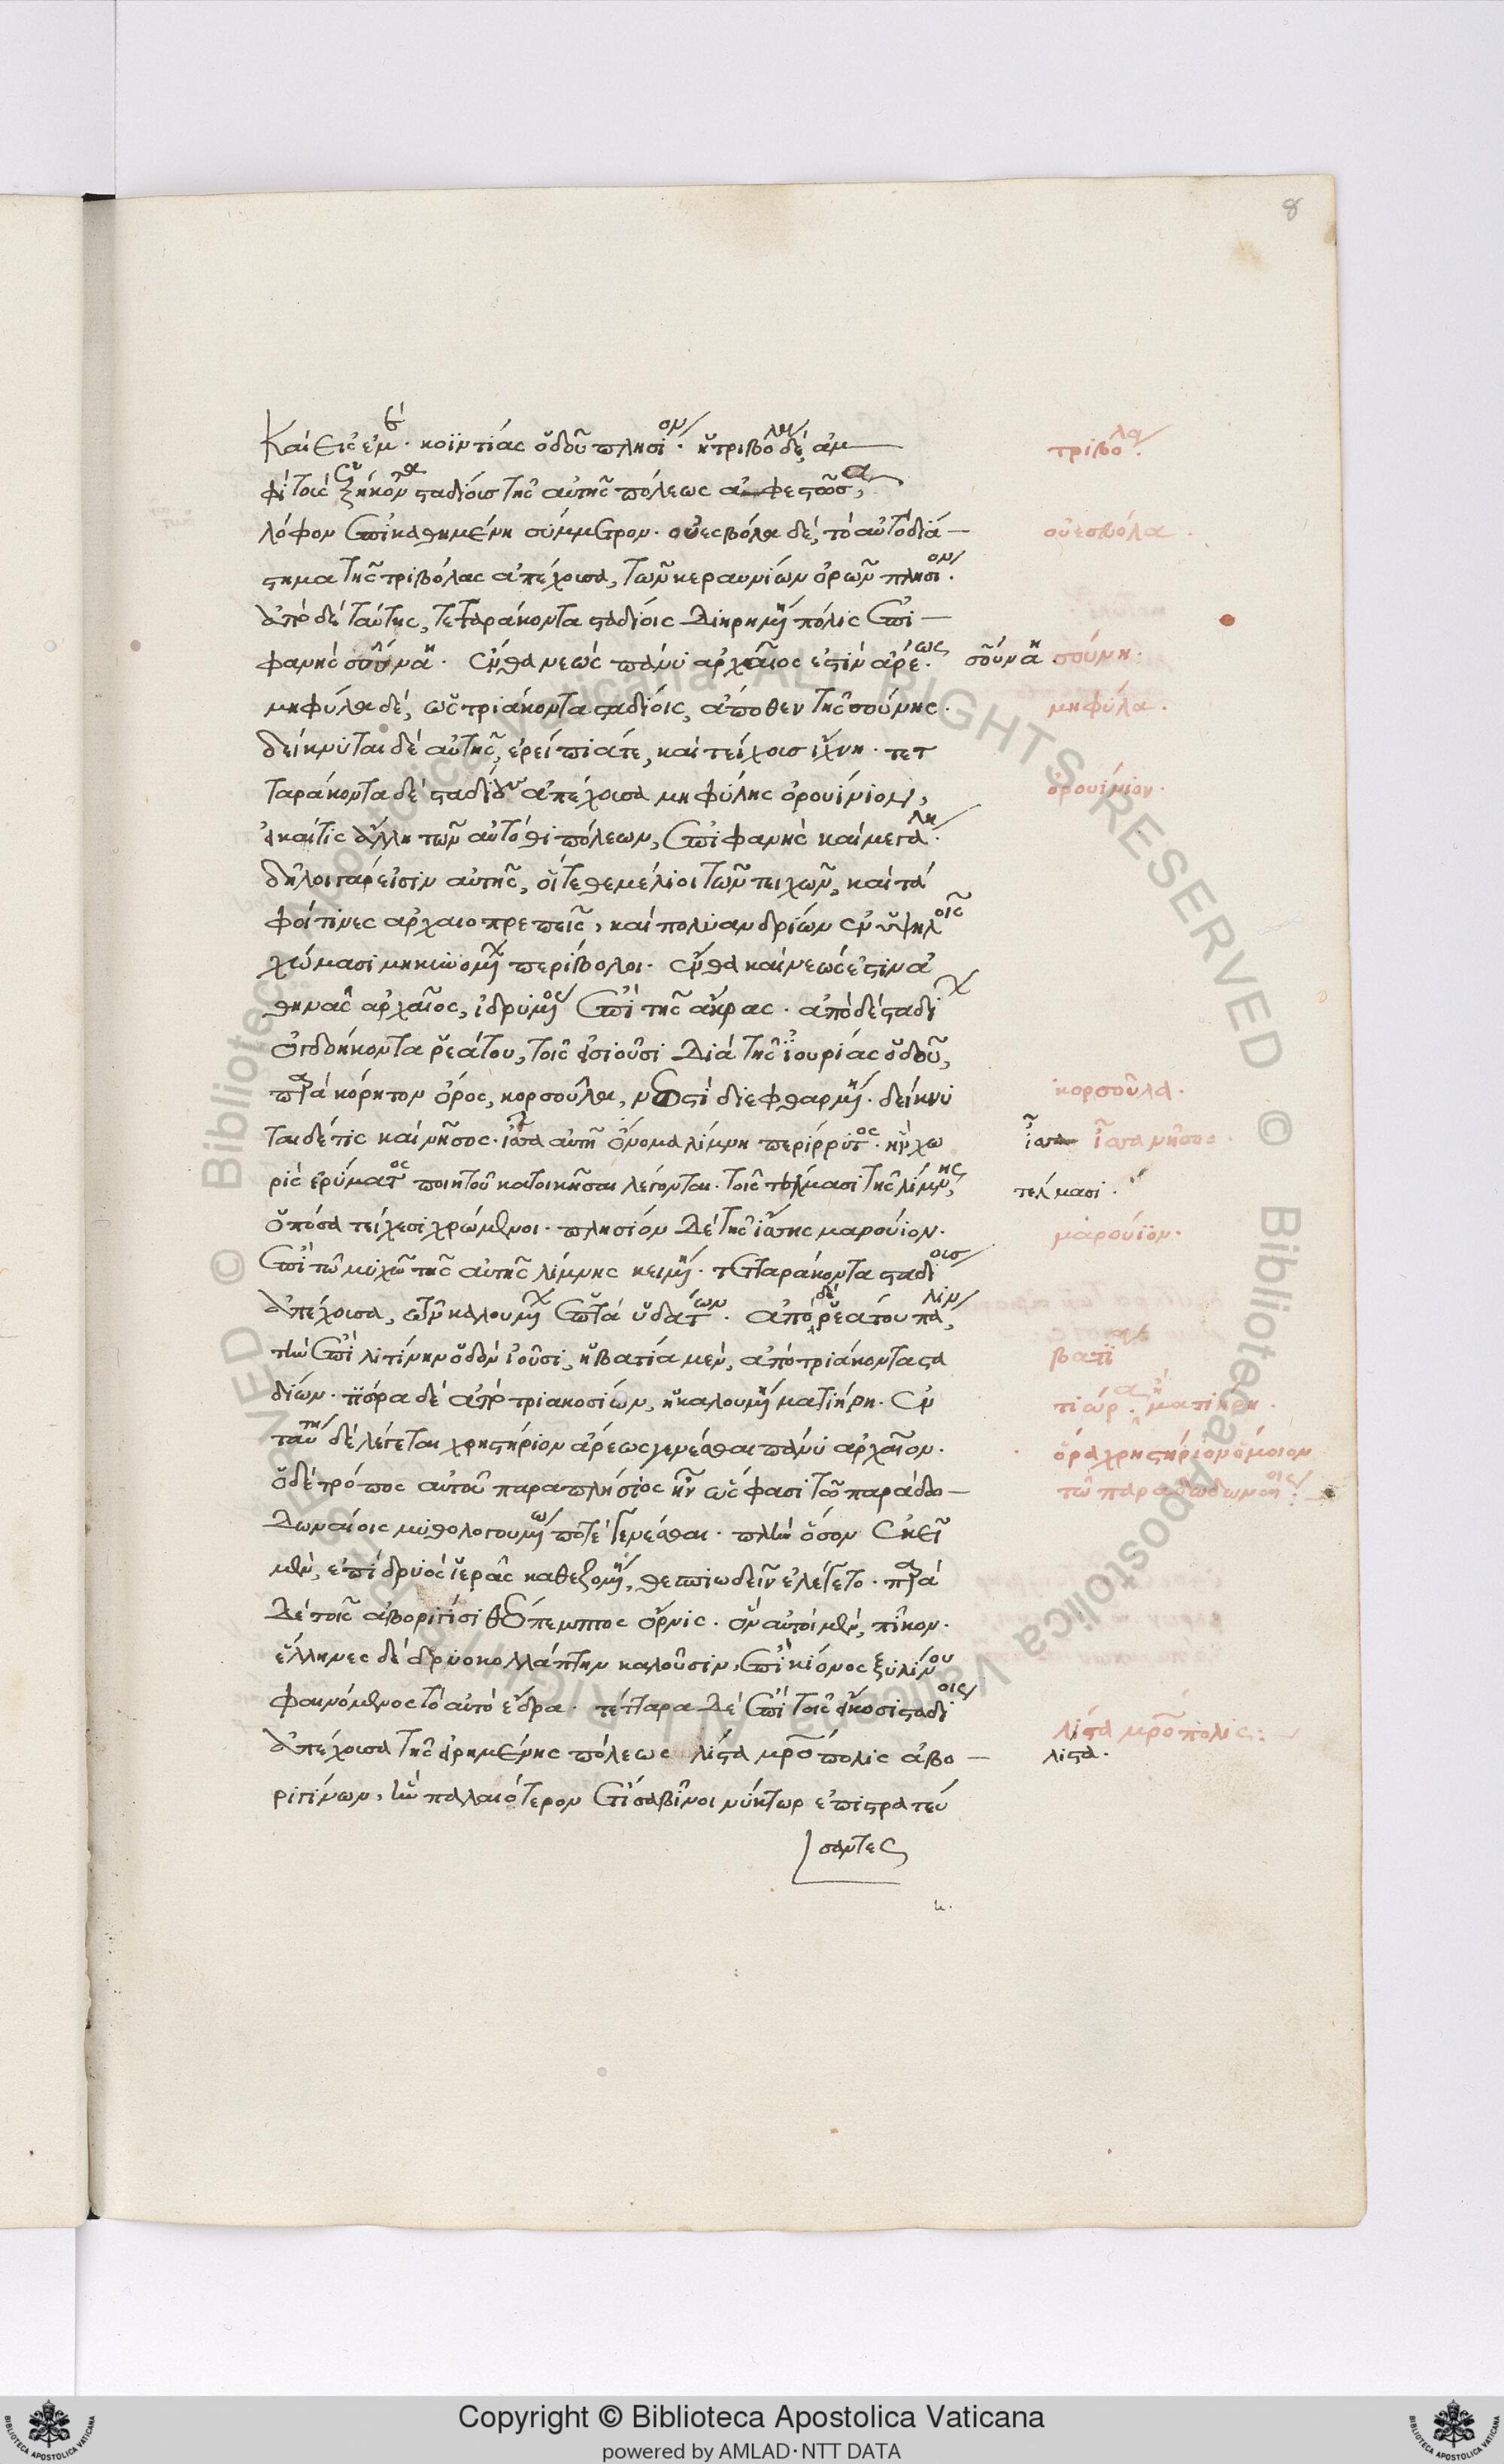 8
Καὶ εἰς ἐμὲ. κοϊντίας ὁδοῦ πλησίον. ἡ τριβόλα δὲ, ἀμ
φὶ τοὺς ἑξήκοντα σταδίοις τῆς αὐτῆς πόλεως ἀφεστῶσα,
λόφον ἐπικαθημένη σύμμετρον. οὐεσβόλα δὲ, τὸ αὐτὸ διά
στημα τῆς τριβόλας ἀπέχουσα, τῶν κεραυνίων ὀρῶν πλησίον.
ἀπὸ δὲ ταύτης, τετταράκοντα σταδίοις διῃρημένη πόλις ἐπι
φανὴς σούνα. ἔνθα νεὼς πάνυ ἀρχαῖος ἐστὶν ἄρεως.
μηφύλα δὲ, ὡς τριάκοντα σταδίοις, ἄποθεν τῆς σούνης.
δείκνυται δὲ αὐτῆς, ἐρείπιά τε, καὶ τείχους ἴχνη. τετ
ταράκοντα δὲ σταδίους ἀπέχουσα μηφύλης ὀρουίνιον,
εἰ καί τις ἄλλη τῶν αὐτόθι πόλεων, ἐπιφανὴς καὶ μεγάλη.
δῆλοι γάρ εἰσιν αὐτῆς, οἵ τε θεμέλιοι τῶν τειχῶν, καὶ τά
φοι τινὲς ἀρχαιοπρεπεῖς, καὶ πολυανδρίων ἐν ὑψηλοῖς
χώμασι μηκυνομένων περίβολοι. ἔνθα καὶ νεώς ἐστιν ἀ
θηνᾶς ἀρχαῖος, ἱδρυμένος ἐπὶ τῆς ἄκρας. ἀπὸ δὲ σταδίων
ὀγδοήκοντα ῥεάτου, τοῖς εἰσιοῦσι διὰ τῆς ἰουρίας ὁδοῦ,
παρὰ κόρητον ὄρος, κορσοῦλα, νεωστὶ διεφθαρμένη. δείκνυ
ται δέ τις καὶ νῆσος. ἴσσα αὐτῇ ὄνομα λίμνη περίρρυτος. ἣν χω
ρὶς ἐρύματος ποιητοῦ κατοικῆσαι λέγονται. τοῖς τέλμασι τῆς λίμνης,
ὁπόσα τείχεσι χρώμενοι. πλησίον δὲ τῆς ἴσσης μαρούϊον.
ἐπὶ τῷ μυχῷ τῆς αὐτῆς λίμνης κειμένη. τετταράκοντα σταδίοις
ἀπέχουσα, τῶν καλουμένων ἑπτὰ ὑδάτων. ἀπὸ δὲ ῥεάτου πάλιν,
τὴν ἐπὶ λιτίνην ὁδὸν ἰοῦσι, ἡ βατία μὲν, ἀπὸ τριάκοντα στα
δίων. τιώρα δὲ ἀπὸ τριακοσίων, ἡ καλουμένη ματιήρη. ἐν
ταύτῃ δὲ λέγεται χρηστήριον ἄρεως γενέσθαι πάνυ ἀρχαῖον.
ὁ δὲ τρόπος αὐτοῦ παραπλήσιος ἦν ὥς φασι τῷ παρὰ δω
δωναίοις μυθολογουμένῳ ποτὲ γενέσθαι. πλὴν ὅσον ἐκεῖ
μὲν, ἐπὶ δρυὸς ἱερᾶς καθεζομένη, θεσπιωδεῖν ἐλέγετο. παρὰ
δὲ τοῖς ἀβοριγῖσι θεόπεμπτος ὄρνις. ὃν αὐτοὶ μὲν, πῖκον.
ἕλληνες δὲ δρυοκολάπτην καλοῦσιν, ἐπὶ κίονος ξυλίνου
φαινόμενος τὸ αὐτὸ ἔδρα. τέτταρα δὲ ἐπὶ τοῖς εἴκοσι σταδίοις
ἀπέχουσα τῆς εἰρημένης πόλεως λίστα μητρόπολις ἀβο
ριγίνων, ἣν παλαιότερον ἔτι σαβῖνοι νύκτωρ ἐπιστρατεύ
σαντες
τριβόλα.
οὐεσβόλα.
σοῦνα σούνη.
μηφύλα.
ὀρουίνιον.
κορσοῦλα.
ἴσσα νῆσος.
τέλμασι.
μαρούϊον.
βατία
τιώρα. ἡ ματιήρη.
ὅρα χρηστήριον ὅμοιον
τῷ παρὰ δωδωναίοις.
λίστα μητρόπολις:
λίστα.
Copyright © Biblioteca Apostolica Vaticana
powered by AMLAD·NTT DATA